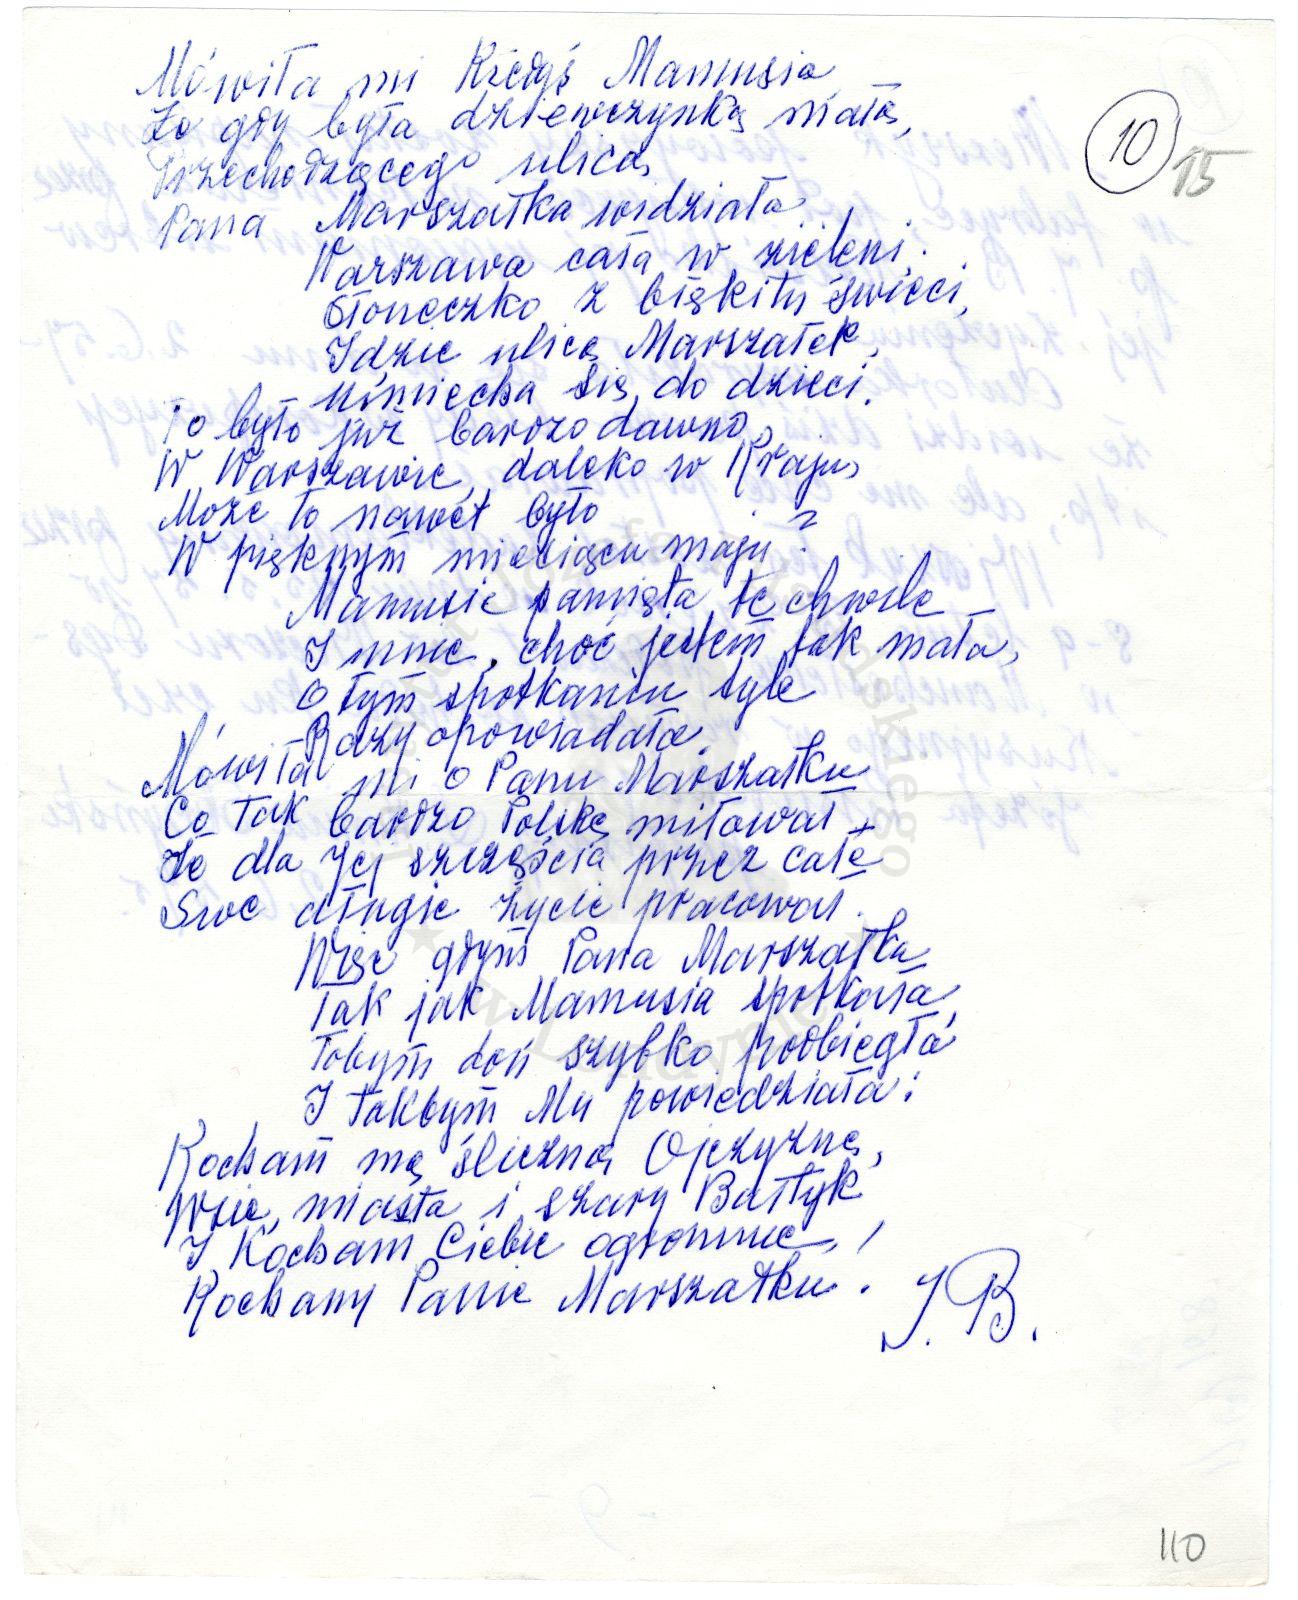 10
15
Mówiła mi Kiedyś Mamusia
Że gdy była dziewczynką małą,
Przechodzącego ulicą
Pana Marszałka widziała
Warszawa cała w zieleni,
Słoneczko z błękitu świeci,
Idzie ulicą Marszałek,
Uśmiecha się do dzieci.
To było już bardzo dawno,
W Warszawie, daleko w Kraju,
Może to nawet było
W pięknym miesiącu maju?
Mamusie pamięta tę chwilę –
I mnie, choć jestem tak mała,
O tym spotkaniu tyle
Razy opowiadała.
Mówiła mi o Panu Marszałku
Co tak bardzo Polskę miłował –
Że dla Jej szczęścia przez całe
Swe długie życie pracował.
Więc gdym Pana Marszałka
Tak jak Mamusia spotkała,
Tobym doń szybko podbiegła
I takbym Mu powiedziała:
Kocham mą śliczną Ojczyznę,
Wsie, miasta i szary Bałtyk
I Kocham Ciebie ogromnie,
Kochany Panie Marszałku.
J.B.
110